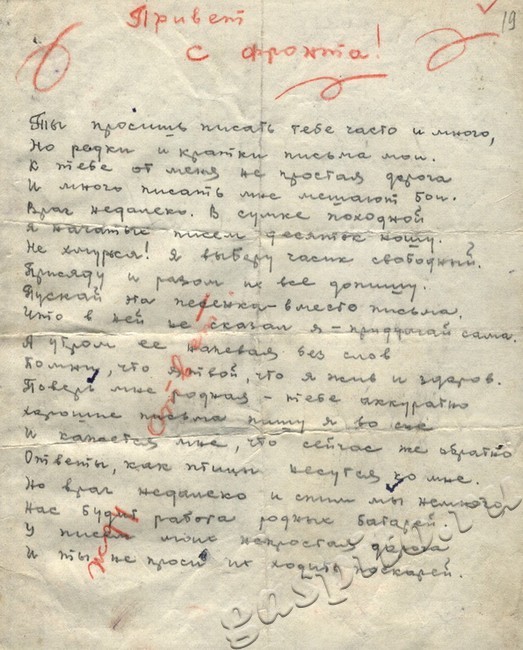 19
Привет
с фронта!
Ты просишь писать тебе часто и много,
Но редки и кратки письма мои.
К тебе от меня не простая дорога
И много писать мне мешают бои.
Враг недалеко. В сумке походной
Я начатых писем десяток ношу.
Не хмурься! Я выберу часик свободный.
Присяду и разом их все допишу.
Пускай эта песенка - вместо письма.
Что в ней не сказал я - придумай сама.
А утром её напевая без слов
Помни, что я твой, что я жив и здоров.
Поверь мне родная - тебе аккуратно
Хорошие письма пишу я во сне
И кажется мне, что сейчас же обратно
Ответы, как птицы несутся ко мне.
Но враг недалеко и спим мы немного
Нас будит работа родных батарей.
У писем моих непростая дорога
И ты не проси их ходить поскорей.
Жду ответ!
gaspiko.ru